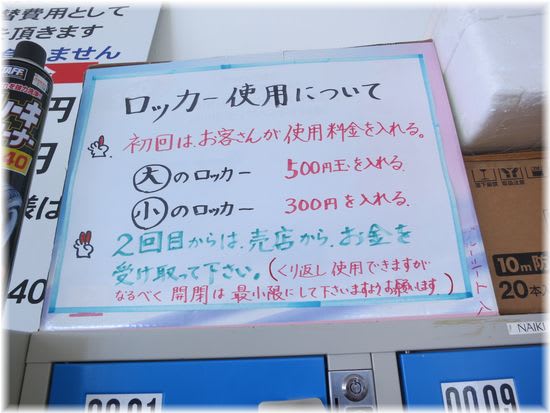 替費用として
頂きます
ません
円
円
様は
40
STAFF
ーキ
ーナー
40
ロッカー使用について
初回は、お客さんが使用料金を入れる。
大のロッカー 500円玉を入れる
小のロッカー 300円を入れる
2回目からは、売店から、お金を
受け取って下さい。(くり返し使用できますが
なるべく開閉は最小限にして下さいますようお願いします)
ブルーシート入
10m防
20本
NAIKI
0001
0009